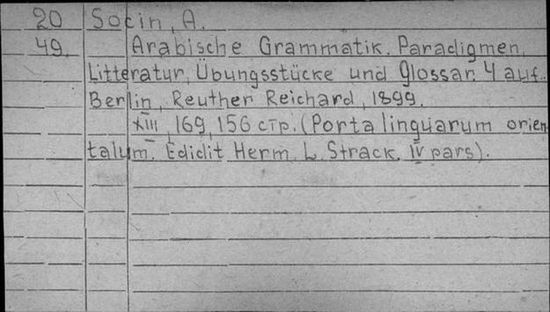 20 Socin, A.
49. Arabische Grammatik. Paradigmen,
Litteratur, Übungsstücke und Glossar. 4 auf.
Berlin, Reuther Reichard, 1899.
XIII, 169, 156 стр. (Porta linguarum orien
talum. Edidit Herm. L. Strack. IV pars).